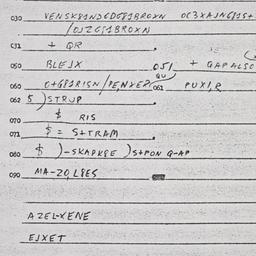 030 VENSK81NDCDG81BROXN OC3XAJNG81S+
/OJ2G81BROXN
031 + QR
050 BLEJX 051 + GAPALSO
060 O+G81RISN/PENXER 061 PUX1,R
062 5 )STRUP
070 $ RIS
071 $ = S+TRAM
080 $ )-SKAPKGE )S+PON Q-AP
090 MA-ZO,L8ES
AZEL-XENE
EJXET